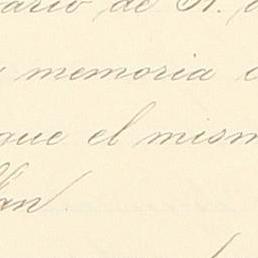 ario de
memoria
que el mism